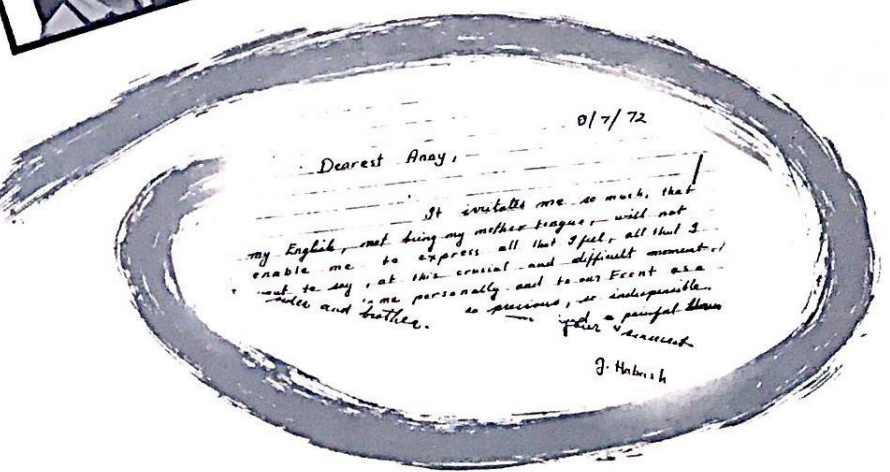 8/7/72
Dearest Anny,
It irritates me so much, that
my English, not being my mother tongue, will not
enable me to express all that I feel, all that I
to say, at this crucial and difficult moment,
me personally and to our Front as a
and brother. so precious, so indispensible.
and a painful
your sincerest
G. Habash